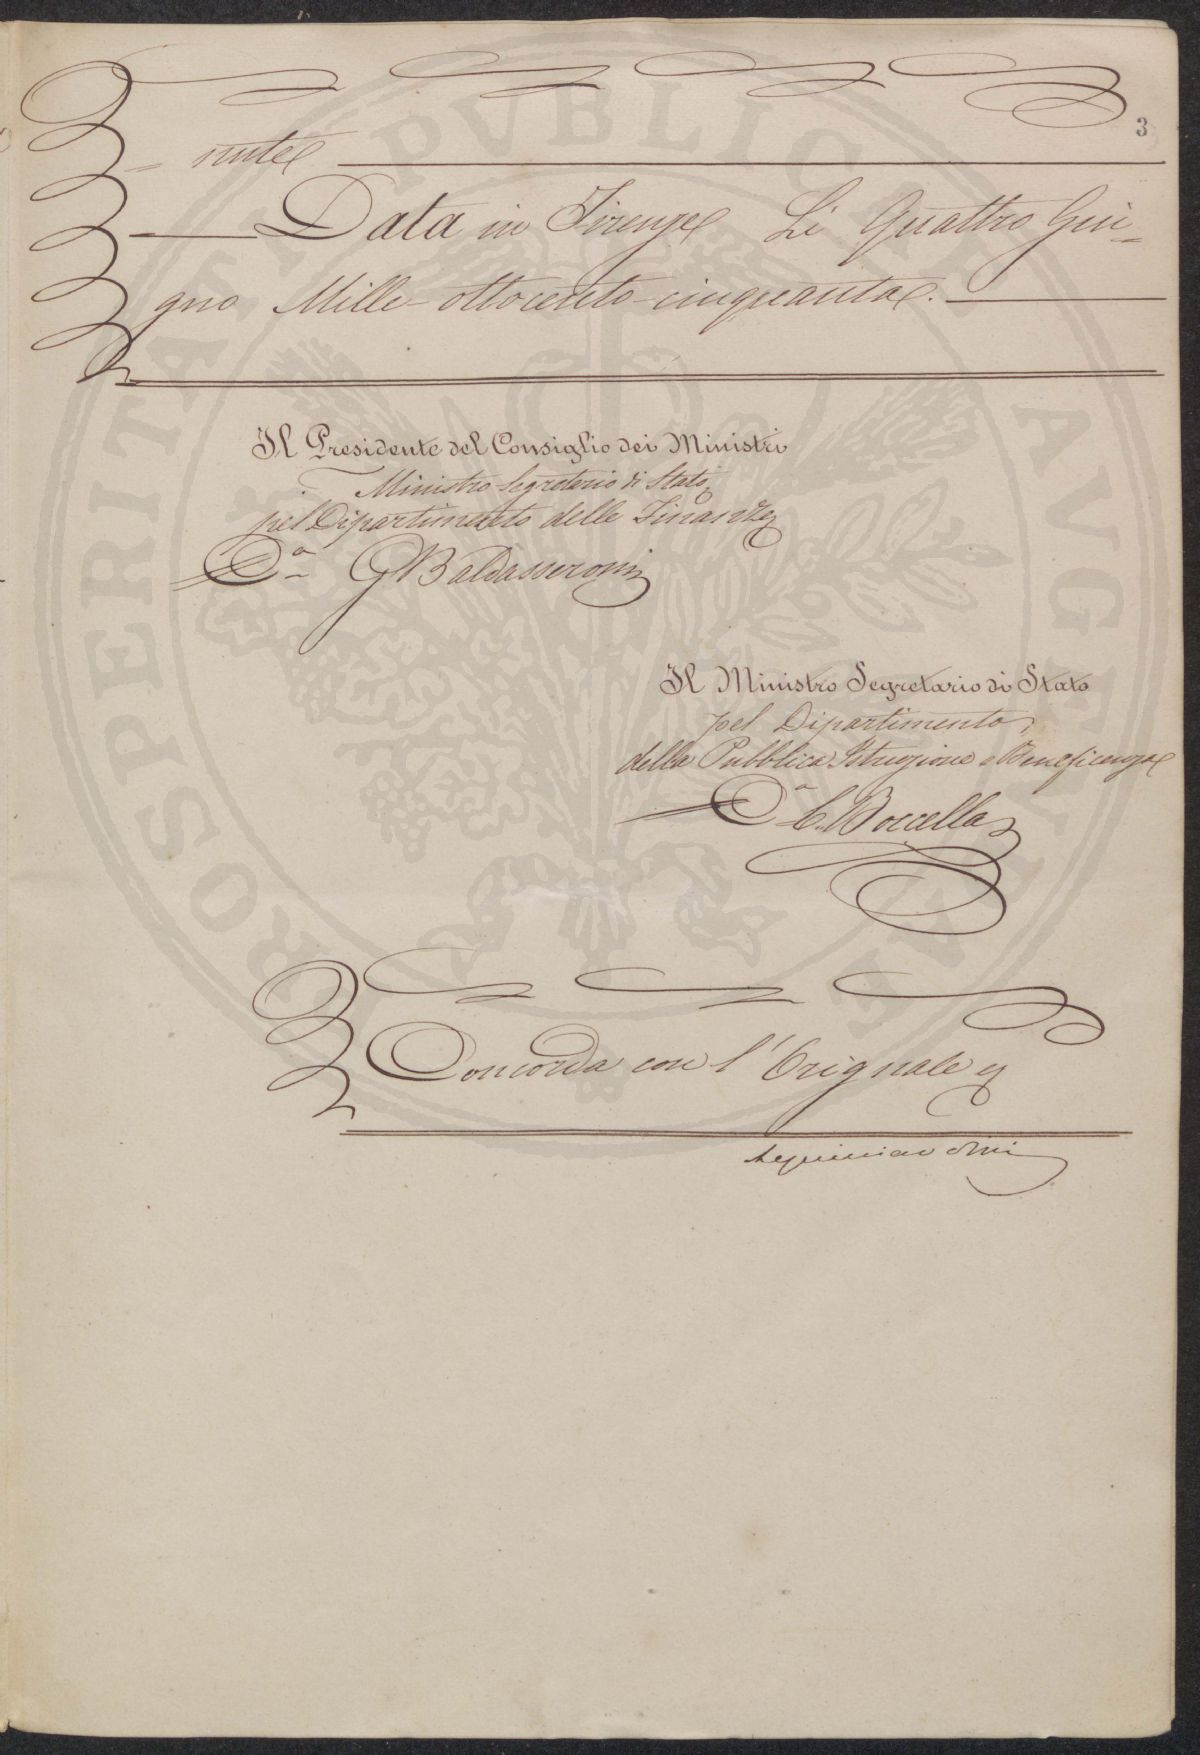 3
= nute
Data in Firenze Li Quattro Giu=
gno Mille-ottocento-cinquanta.
Il Presidente del Consiglio dei Ministri
Ministro Segretario di Stato
pel Dipartimento delle Finanze
G Baldasseroni
Il Ministro Segretario di Stato
pel Dipartimento
della Pubblica Istruzione e Beneficenza
C. Boccella
Concorda con l'Orignale
PROSPERITATI PVBLICAE AVGENDAE